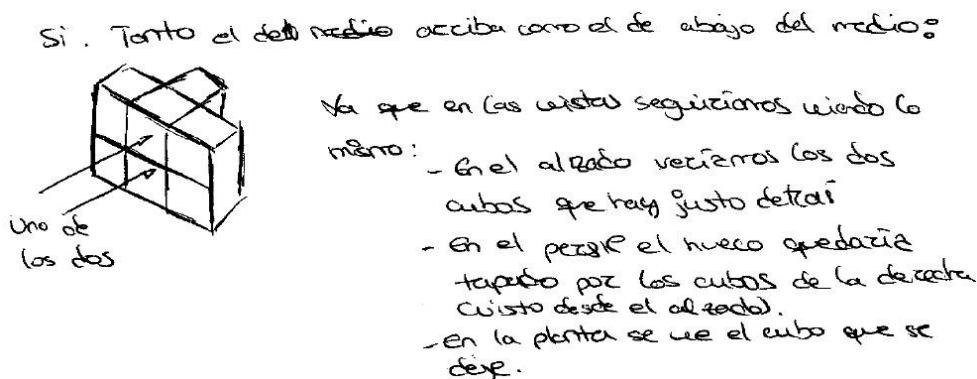 Si. Tanto el del medio arriba como el de abajo del medio:
Ya que en las vistas seguiríamos viendo lo
mismo:
- En el alzado veríamos los dos
cubos que hay justo detrás
- En el perfil el hueco quedaría
tapado por los cubos de la derecha
(visto desde el alzado).
- En la planta se ve el cubo que se
deje.
Uno de
los dos